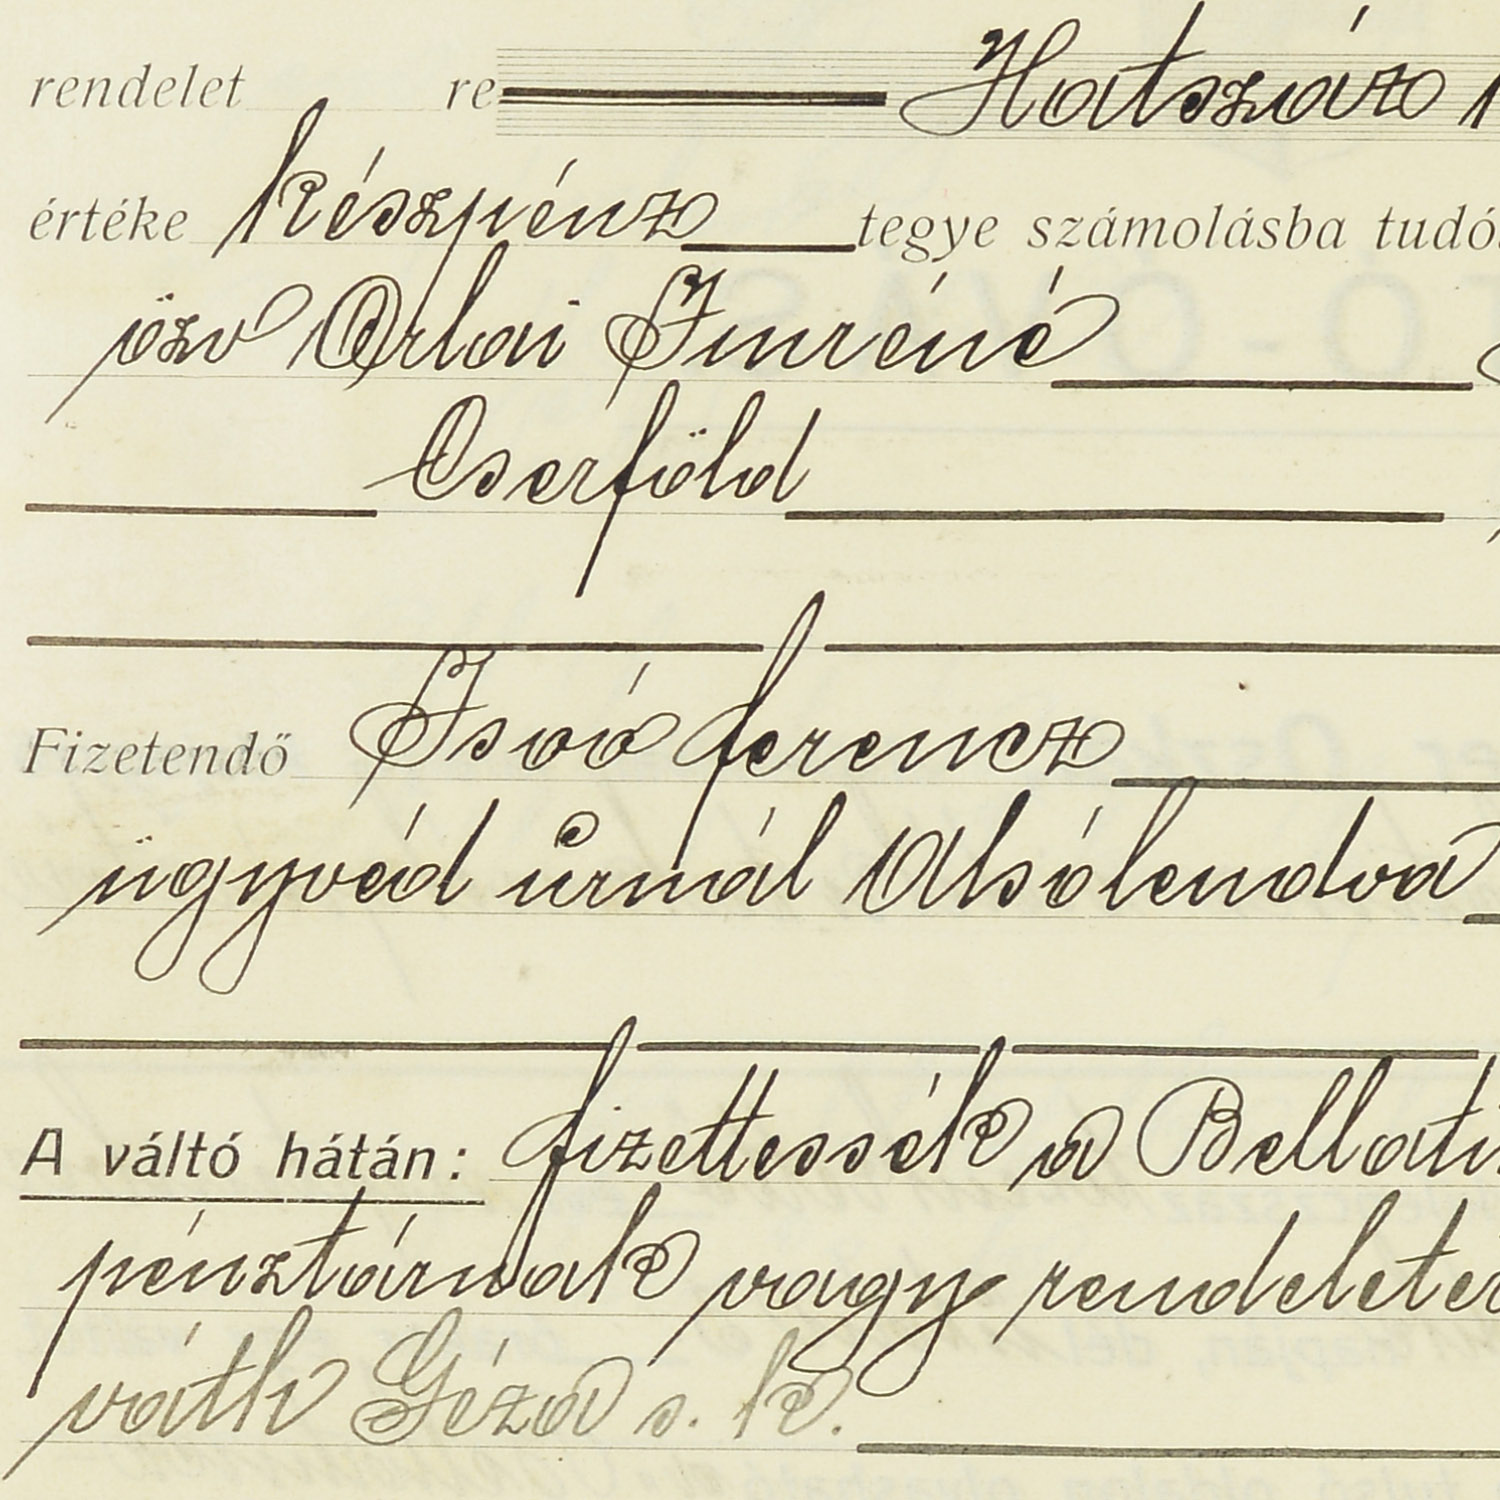 rendelet re Hatszáz
értéke készpénz tegye számolásba tudó
özv Orlai Imréné
Cserföld
Fizetendő Isoó ferencz
ügyvéd úrnál Alsólendva
A váltó hátán: fizettessék a Bellati
pénztárnak vagy rendeleté
váth Géza s. k.